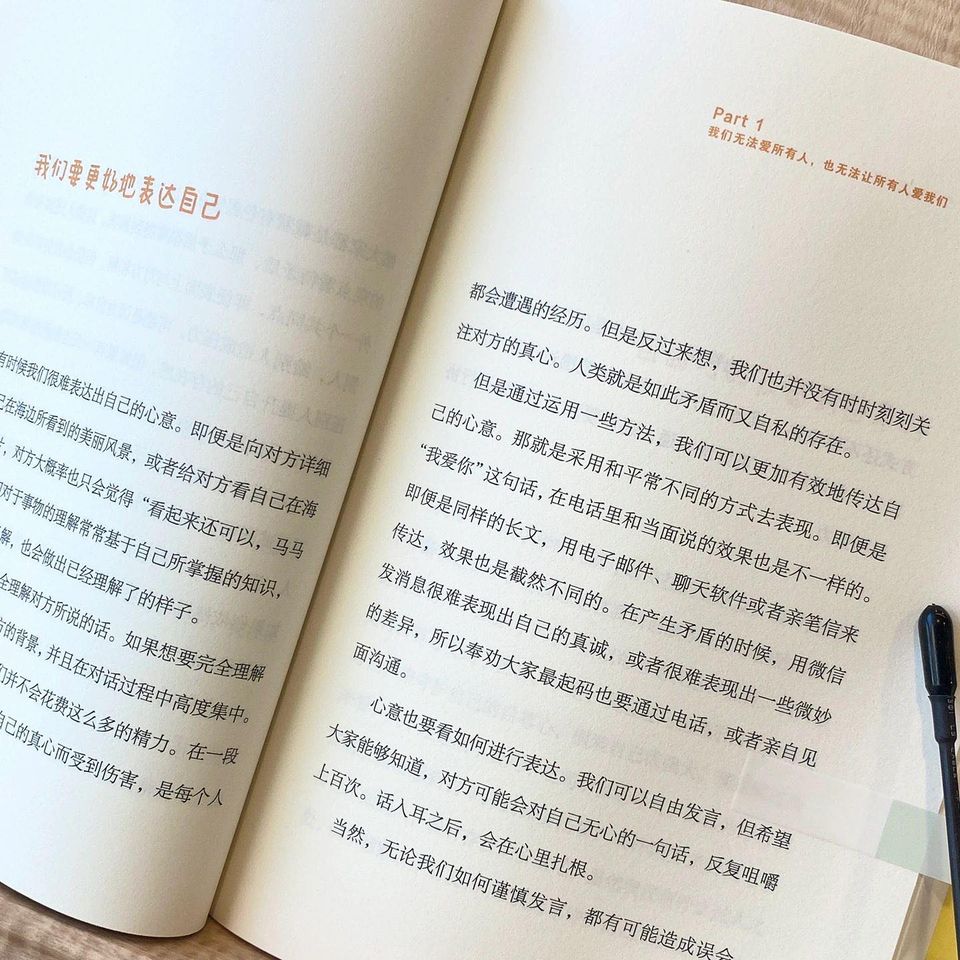 我们要更好地表达自己
有时候我们很难表达出自己的心意。即便是向对方详细
己在海边所看到的美丽风景，或者给对方看自己在海
，对方大概率也只会觉得“看起来还可以，马马
对于事物的理解常常基于自己所掌握的知识，
解，也会做出已经理解了的样子。
全理解对方所说的话。如果想要完全理解
方的背景，并且在对话过程中高度集中。
们并不会花费这么多的精力。在一段
自己的真心而受到伤害，是每个人
Part 1
我们无法爱所有人，也无法让所有人爱我们
都会遭遇的经历。但是反过来想，我们也并没有时时刻刻关
注对方的真心。人类就是如此矛盾而又自私的存在。
但是通过运用一些方法，我们可以更加有效地传达自
己的心意。那就是采用和平常不同的方式去表现。即便是
“我爱你”这句话，在电话里和当面说的效果也是不一样的。
即便是同样的长文，用电子邮件、聊天软件或者亲笔信来
传达，效果也是截然不同的。在产生矛盾的时候，用微信
发消息很难表现出自己的真诚，或者很难表现出一些微妙
的差异，所以奉劝大家最起码也要通过电话，或者亲自见
面沟通。
心意也要看如何进行表达。我们可以自由发言，但希望
大家能够知道，对方可能会对自己无心的一句话，反复咀嚼
上百次。话入耳之后，会在心里扎根。
当然，无论我们如何谨慎发言，都有可能造成误会